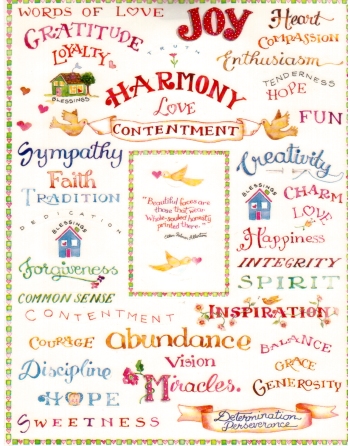 WORDS OF LOVE
JOY
Heart
GRATITUDE
COMPASSION
LOYALTY
TRUTH
Enthusiasm
HARMONY
TENDERNESS
HOPE
BLESSINGS
LOVE
FUN
CONTENTMENT
Sympathy
Creativity
Faith
TRADITION
BLESSINGS
CHARM
LOVE
"Beautiful faces are
those that wear
whole-souled honesty
printed there.
DEDICATION
BLESSINGS
Happiness
Forgiveness
INTEGRITY
SPIRIT
COMMON SENSE
CONTENTMENT
INSPIRATION
COURAGE
abundance
BALANCE
Discipline
Vision
GRACE
HOPE
Miracles.
GENEROSITY
SWEETNESS
Determination
Perseverance